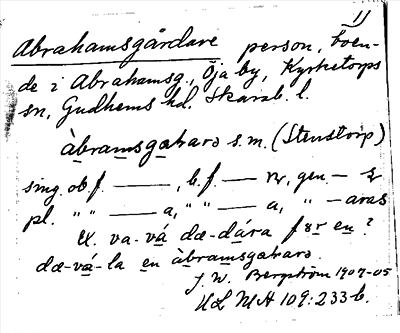 11
Abrahamsgårdare person, boen-
de i Abrahamsg., Öja by, Kyrketorps
sn, Gudhems hd. Skarab. l.
àbramsgaharə s.m. (Stenstorp)
sing. ob. f. ——, b. f. —— gen —
pl. " " —— a, " " —— a, " — aras
Ex. va-vá dæ-dára fər en?
dæ-vá-la en àbramsgaharə.
J. W. Bergström 1907-05
ULMA 109:233 b.